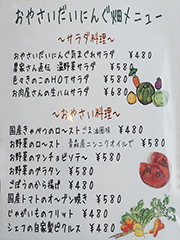 おやさいだいにんぐ畑メニュー
〜サラダ料理〜
おやさいだいにんぐ気まぐれサラダ ¥480
農家さん直伝 温野菜サラダ ¥580
色々きのこのHOTサラダ ¥580
お肉屋さんの生ハムサラダ ¥680
〜おやさい料理〜
国産きゃべつのロースト ごま油風味 ¥480
お野菜のロースト 青森産ニンニクオイルで ¥580
お野菜のアンチョビソテー ¥580
お野菜のグラタン ¥580
ごぼうのから揚げ ¥480
国産トマトのオーブン焼き ¥580
じゃがいものフリット ¥480
シェフの自家製ピクルス ¥480